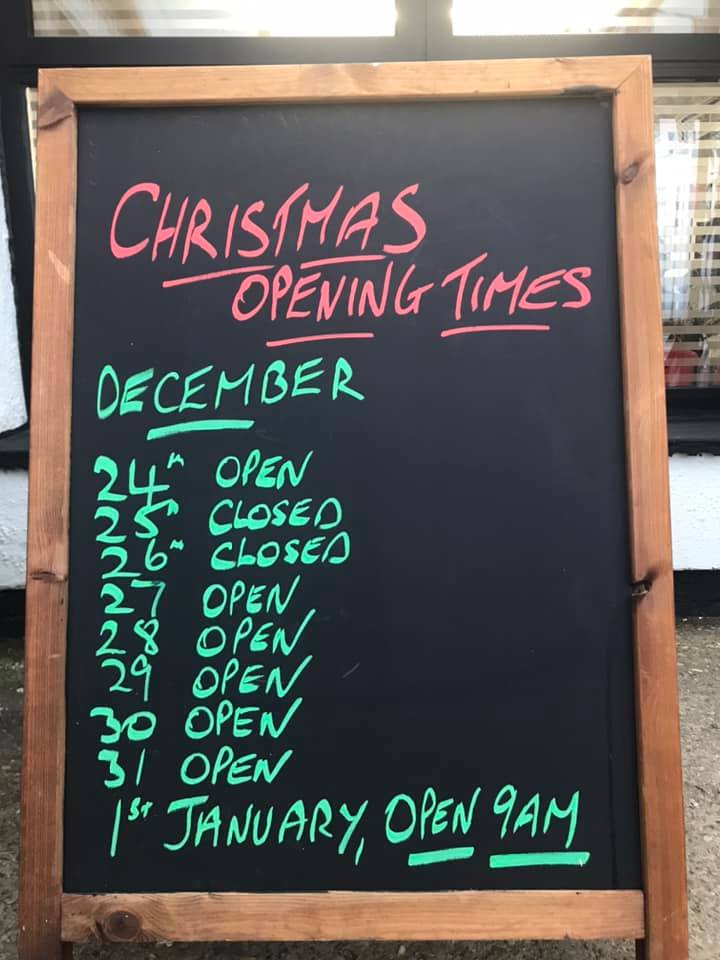 CHRISTMAS
OPENING TIMES
DECEMBER
24th OPEN
25th CLOSED
26th CLOSED
27 OPEN
28 OPEN
29 OPEN
30 OPEN
31 OPEN
1ST JANUARY, OPEN 9AM